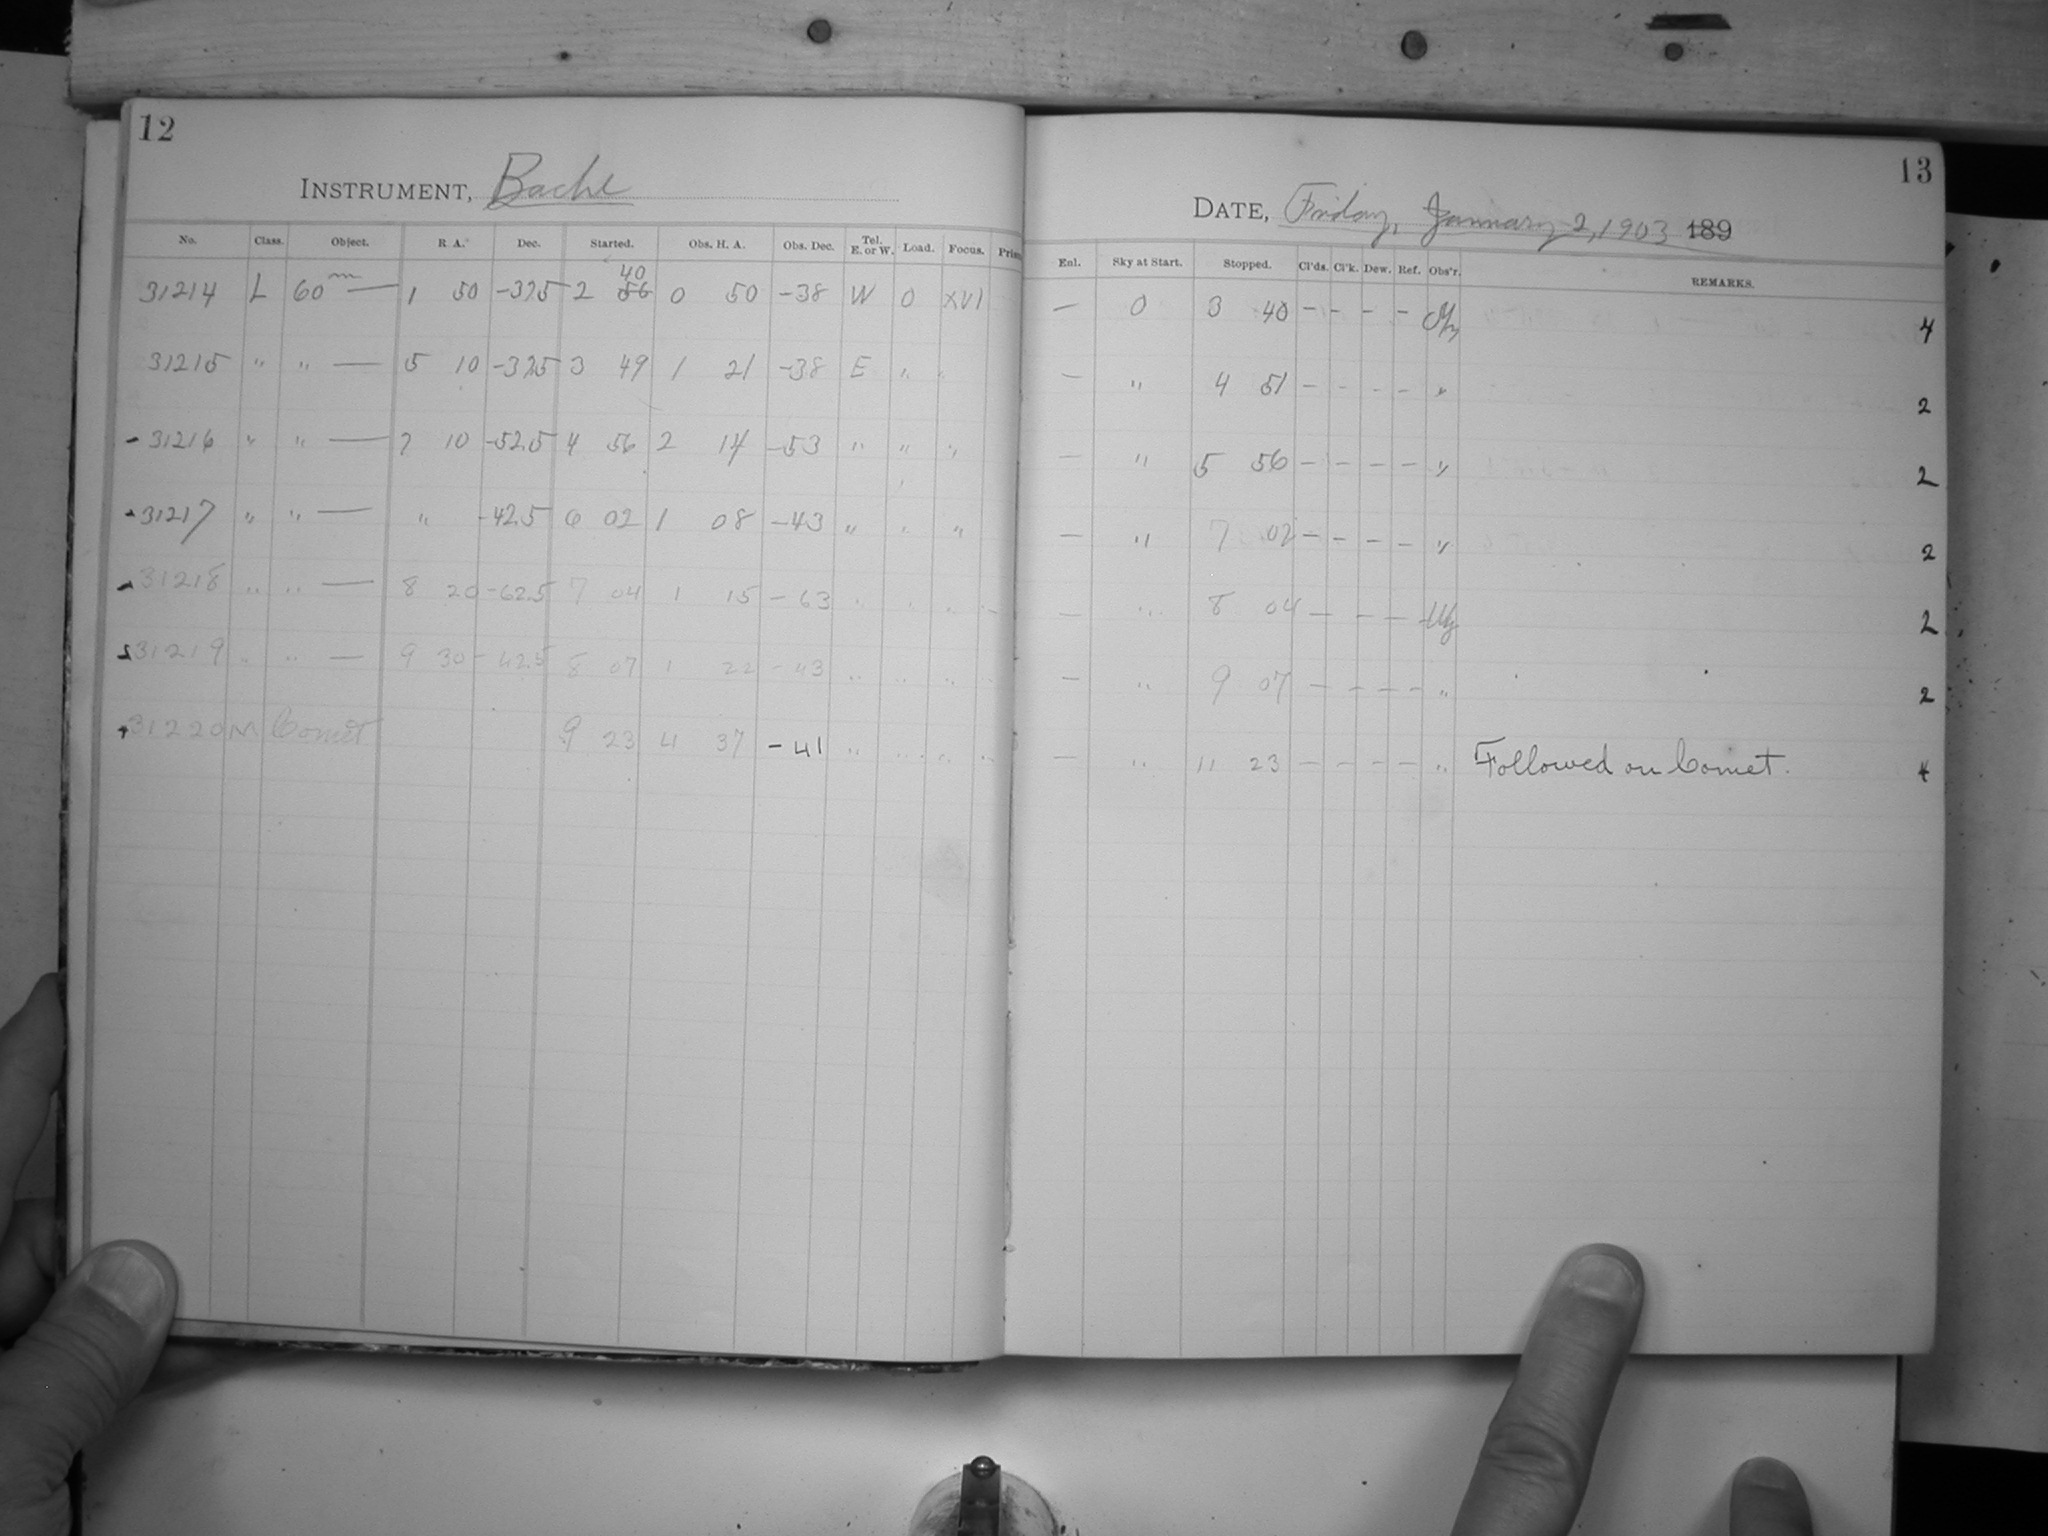 12
INSTRUMENT, Bache
No. Class. Object. R. A. Dec. Started. Obs. H. A. Obs. Dec. Tel. E. or W. Load. Focus.
31214 L 60m — 1 50 -37.5 2 56 40 0 50 -38 W 0 XVI
31215 " " — 5 10 -37.5 3 49 1 21 -38 E " "
31216 " " — 7 10 -52.5 4 56 2 14 -53 " " "
31217 " " — " -42.5 6 02 1 08 -43 " " "
31218 " " — 8 20 -62.5 7 04 1 15 -63 " " " "
31219 " " — 9 30 -42.5 8 07 1 22 -43 " " " "
31220 M Comet 9 23 4 37 -41 " " " "
13
DATE, Friday, January 2, 1903 189
Enl. Sky at Start. Stopped. Cl'ds. Cl'k. Dew. Ref. Obs'r. REMARKS.
— 0 3 40 — — — — 4
— " 4 51 — — — — " 2
— " 5 56 — — — — " 2
— " 7 02 — — — — " 2
— " 8 04 — — — 2
— " 9 07 — — — — " 2
— " 11 23 — — — — " Followed on Comet. 4